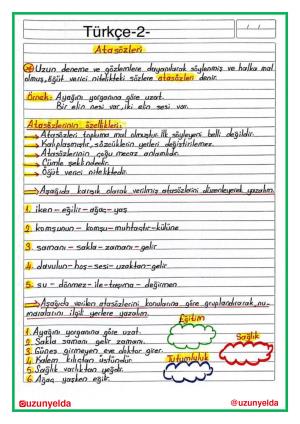 Türkçe-2-
Atasözleri
Uzun deneme ve gözlemlere dayanılarak söylenmiş ve halka mal
olmuş, öğüt verici nitelikteki sözlere atasözleri denir.
Örnek: Ayağını yorganına göre uzat.
Bir elin nesi var, iki elin sesi var.
Atasözlerinin özellikleri:
Atasözleri topluma mal olmuştur. İlk söyleyeni belli değildir.
Kalıplaşmıştır, sözcüklerin yerleri değiştirilemez.
Atasözlerinin çoğu mecaz anlamlıdır.
Cümle şeklindedir.
Öğüt verici niteliktedir.
Aşağıda karışık olarak verilmiş atasözlerini düzenleyerek yazalım.
1. iken - eğilir - ağaç - yaş
2. komşunun - komşu - muhtaçtır - külüne
3. samanı - sakla - zamanı - gelir
4. davulun - hoş - sesi - uzaktan - gelir
5. su - dönmez - ile - taşıma - değirmen
Aşağıda verilen atasözlerini konularına göre gruplandırarak, nu-
maralarını ilgili yerlere yazalım.
Eğitim
1. Ayağını yorganına göre uzat.
2. Sakla samanı gelir zamanı.
Sağlık
3. Güneş girmeyen eve doktor girer.
4. Kalem kılıçtan üstündür.
Tutumluluk
5. Sağlık varlıktan yeğdir.
6. Ağaç yaşken eğilir.
@uzunyelda
@uzunyelda